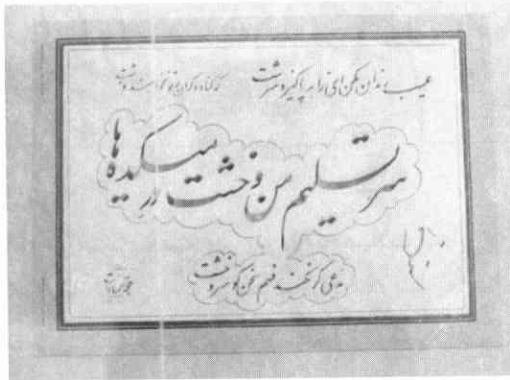 عیب رندان مکن ای زاهد پاکیزه سرشت
که گناه دگران بر تو نخواهند نوشت
سر تسلیم من و خشت در میکده ها
مدعی گر نکند فهم سخن گو سر و خشت